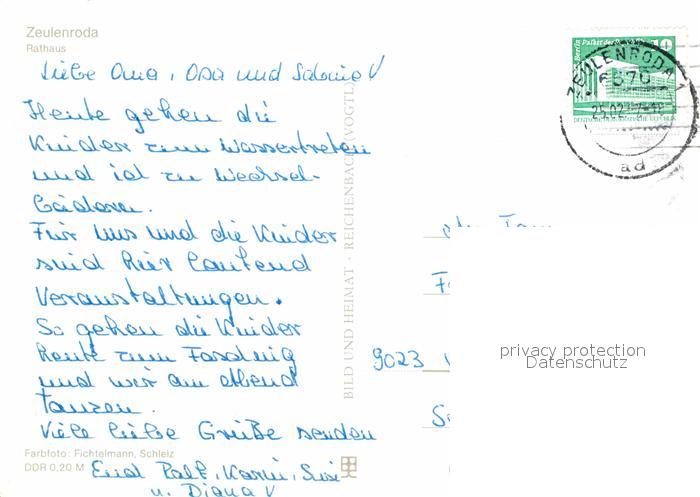 Zeulenroda
Rathaus
Liebe Oma, Opa und Sabine!
Heute gehen die
Kinder zum Wassertreten
und ich zu Wechsel-
bädern.
Für uns und die Kinder
sind hier laufend
Veranstaltungen.
So gehen die Kinder
heute zum Fasching
und wir am Abend
tanzen.
Viele liebe Grüße senden
Ralf, Karin, Susi
u. Diana
Farbfoto: Fichtelmann, Schleiz
DDR 0,20 M
BILD UND HEIMAT · REICHENBACH (VOGTL)
Berlin Palast der
DEUTSCHE DEMOKRATISCHE REPUBLIK
10
ZEULENRODA 1
6570
ad
9023
privacy protection
Datenschutz